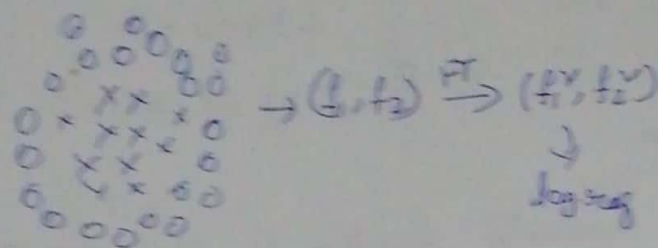 → (f1, f2) FT→ (f1², f2²)
↓
log reg